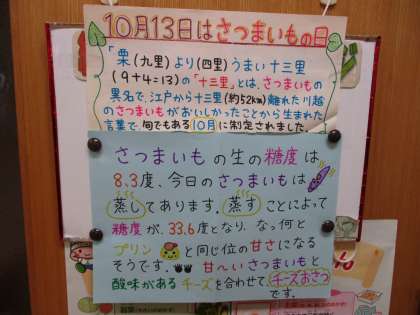 10月13日はさつまいもの日
「栗(九里)より(四里)うまい十三里
(9+4=13)の「十三里」とは、さつまいもの
異名で、江戸から十三里(約52km)離れた川越
のさつまいもがおいしかったことから生まれた
言葉で、旬でもある10月に制定されました。
さつまいもの生の糖度は
8,3度、今日のさつまいもは
蒸してあります。蒸すことによって
糖度が、33.6度となり、なっ何と
プリンと同じ位の甘さになる
そうです。甘〜いさつまいもと
酸味があるチーズを合わせて、チーズおさつ
です。